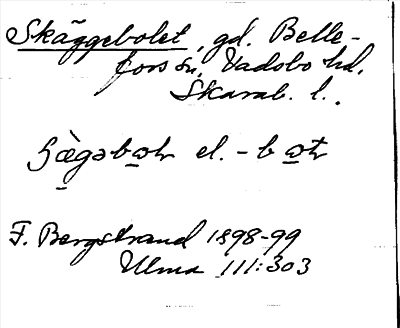 Skäggebolet, gd. Belle-
fors sn, Vadsbo hd,
Skarab. l.
el. -
F. Bergstrand 1898-99
Ulma 111:303